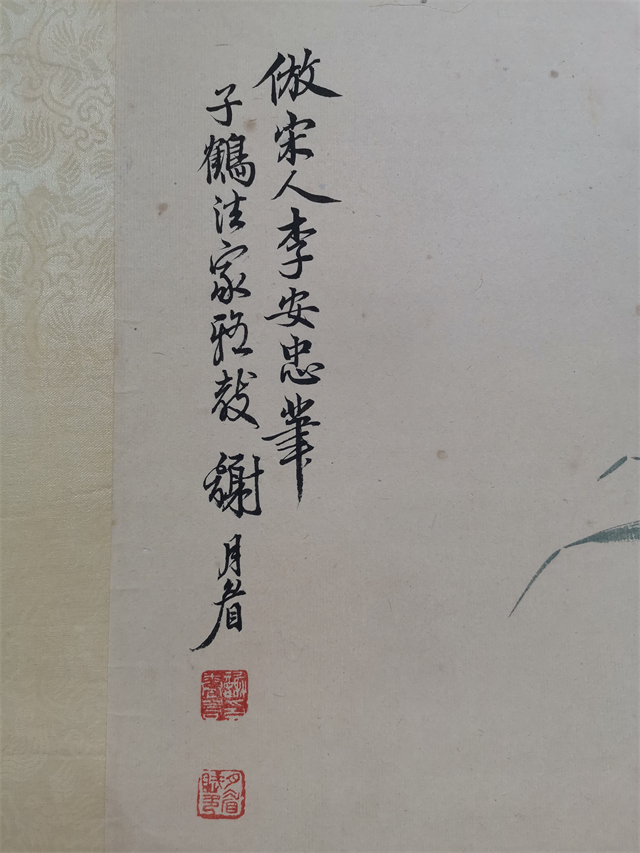 倣宋人李安忠筆
子鶴法家雅教 謝月眉